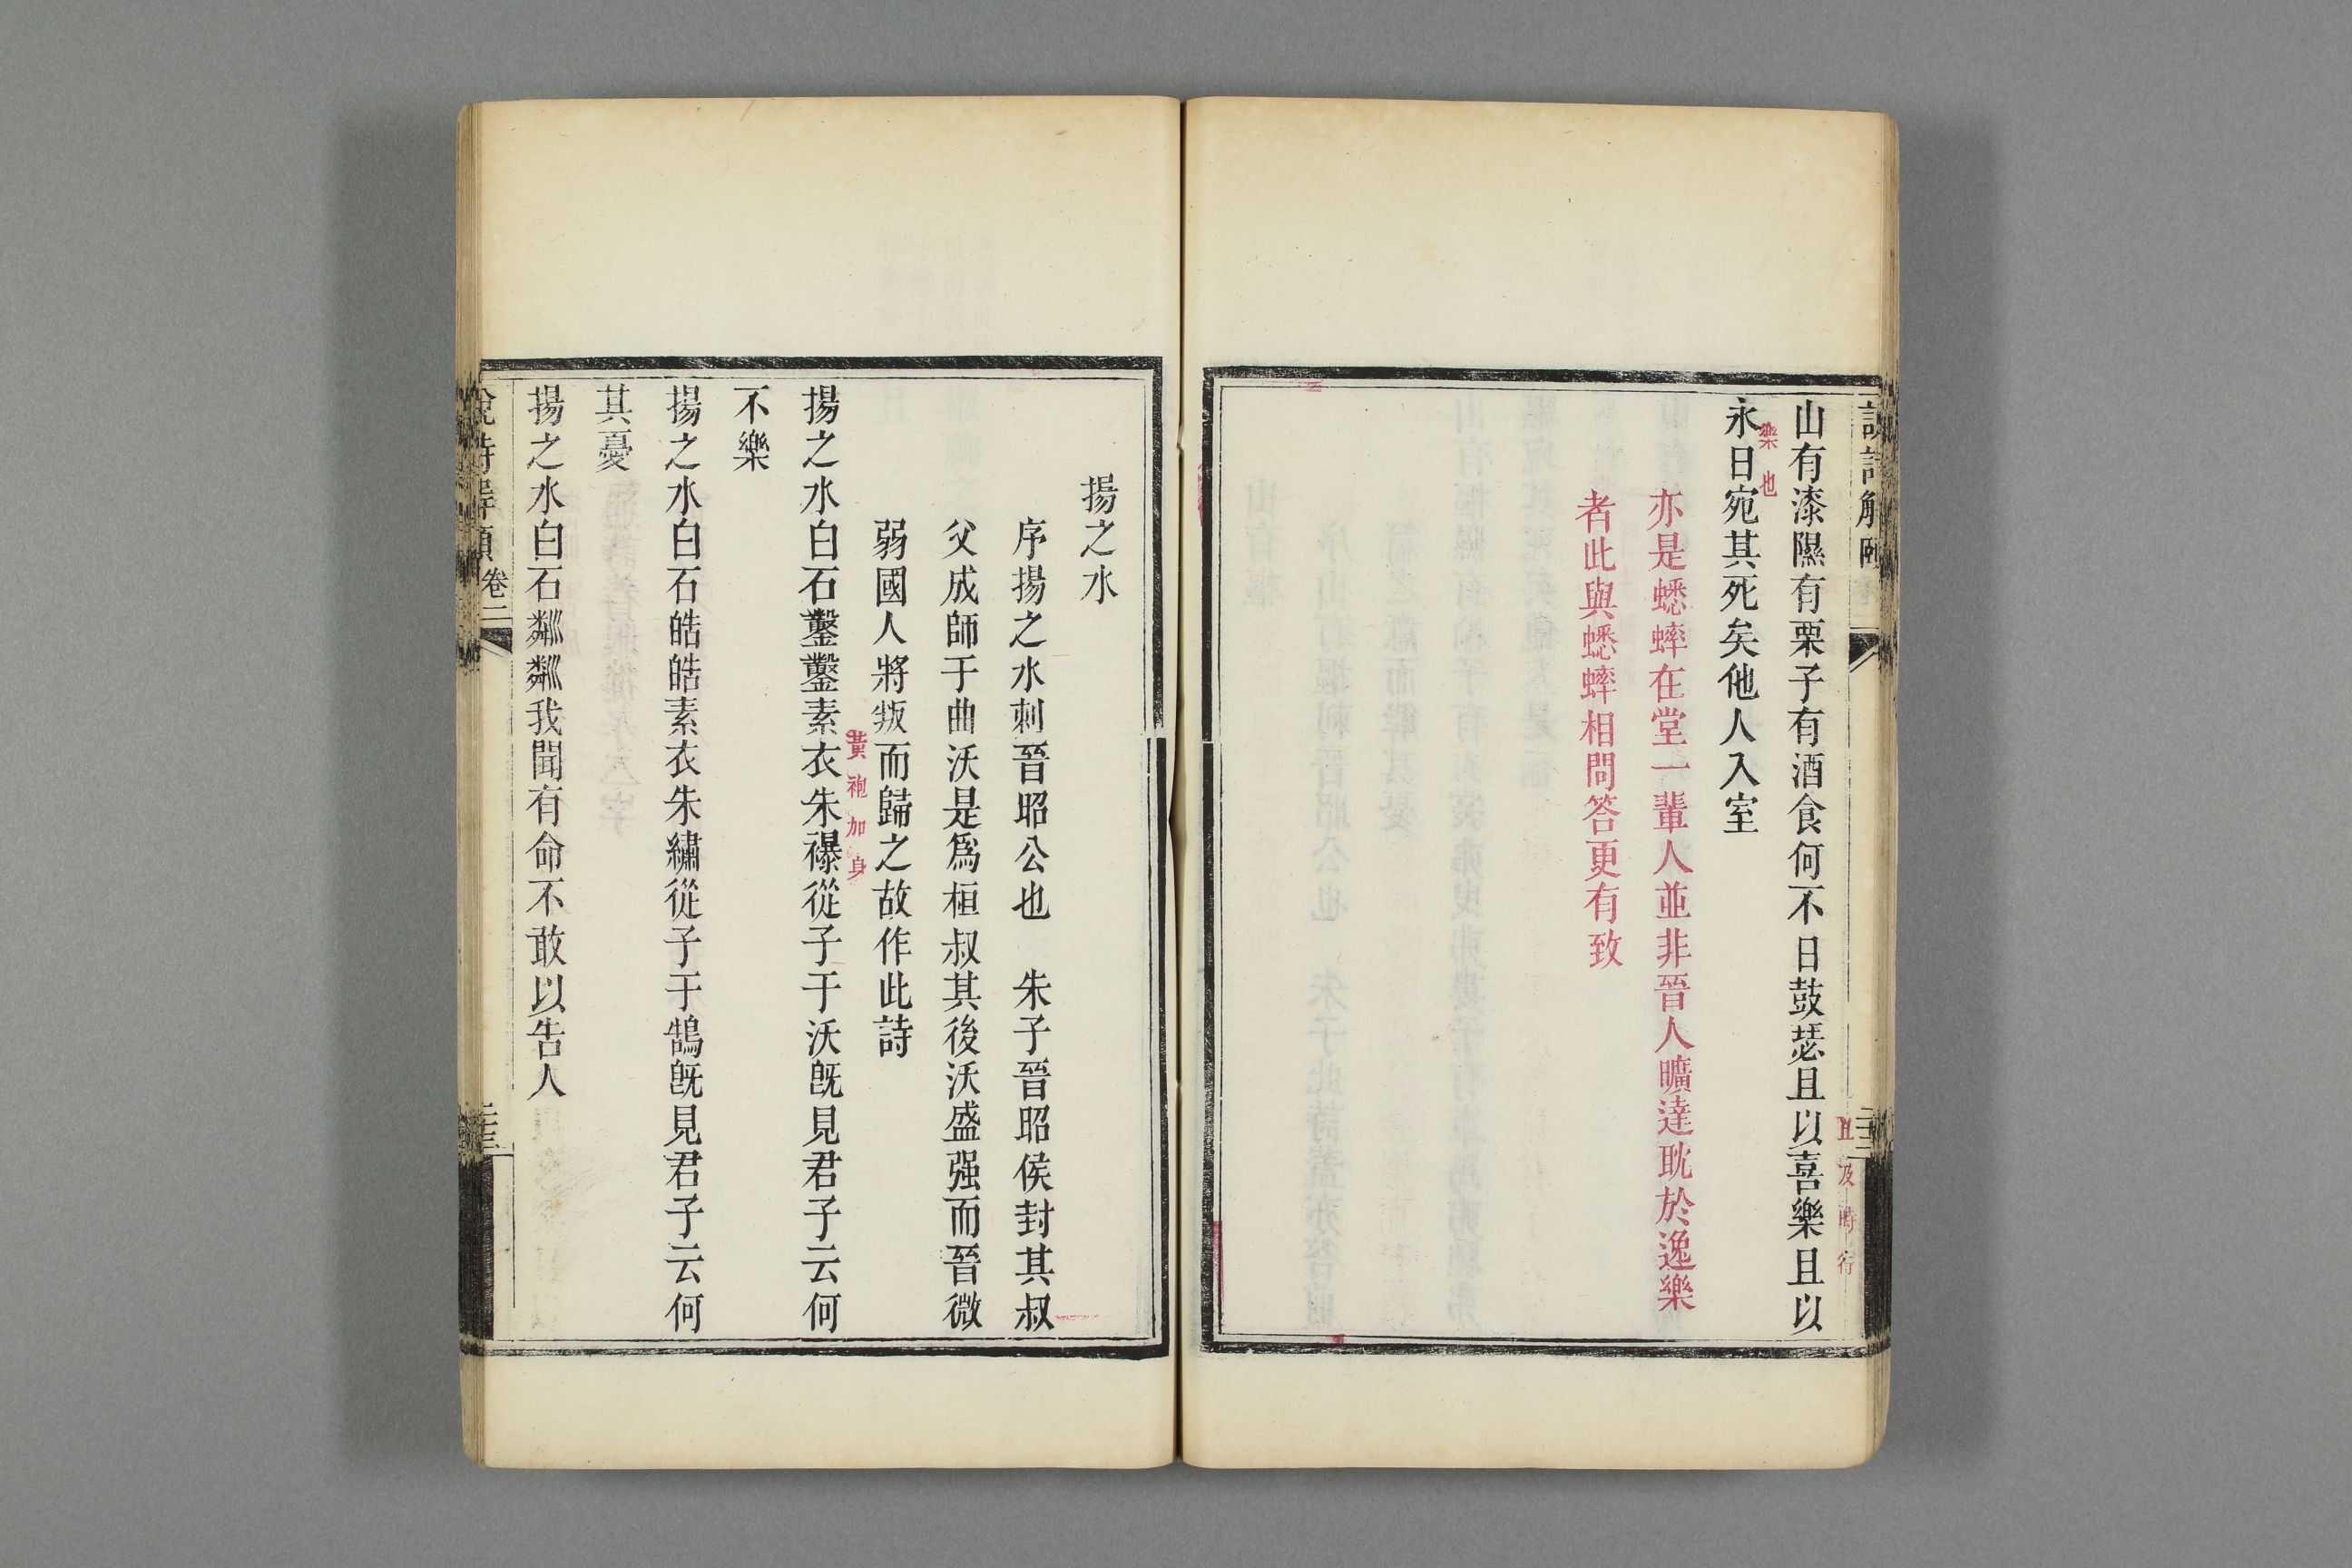 說詩解頤
二十二
且及時行
山有漆隰有栗子有酒食何不日鼓瑟且以喜樂且以
樂也
永日宛其死矣他人入室
亦是蟋蟀在堂一輩人並非晉人曠達耽於逸樂
者此與蟋蟀相問答更有致
揚之水
序揚之水刺晉昭公也　朱子晉昭侯封其叔
父成師于曲沃是爲桓叔其後沃盛强而晉微
弱國人將叛而歸之故作此詩
黃袍加身
揚之水白石鑿鑿素衣朱襮從子于沃旣見君子云何
不樂
揚之水白石皓皓素衣朱繡從子于鵠旣見君子云何
其憂
揚之水白石粼粼我聞有命不敢以告人
說詩解頤
卷二
二十三